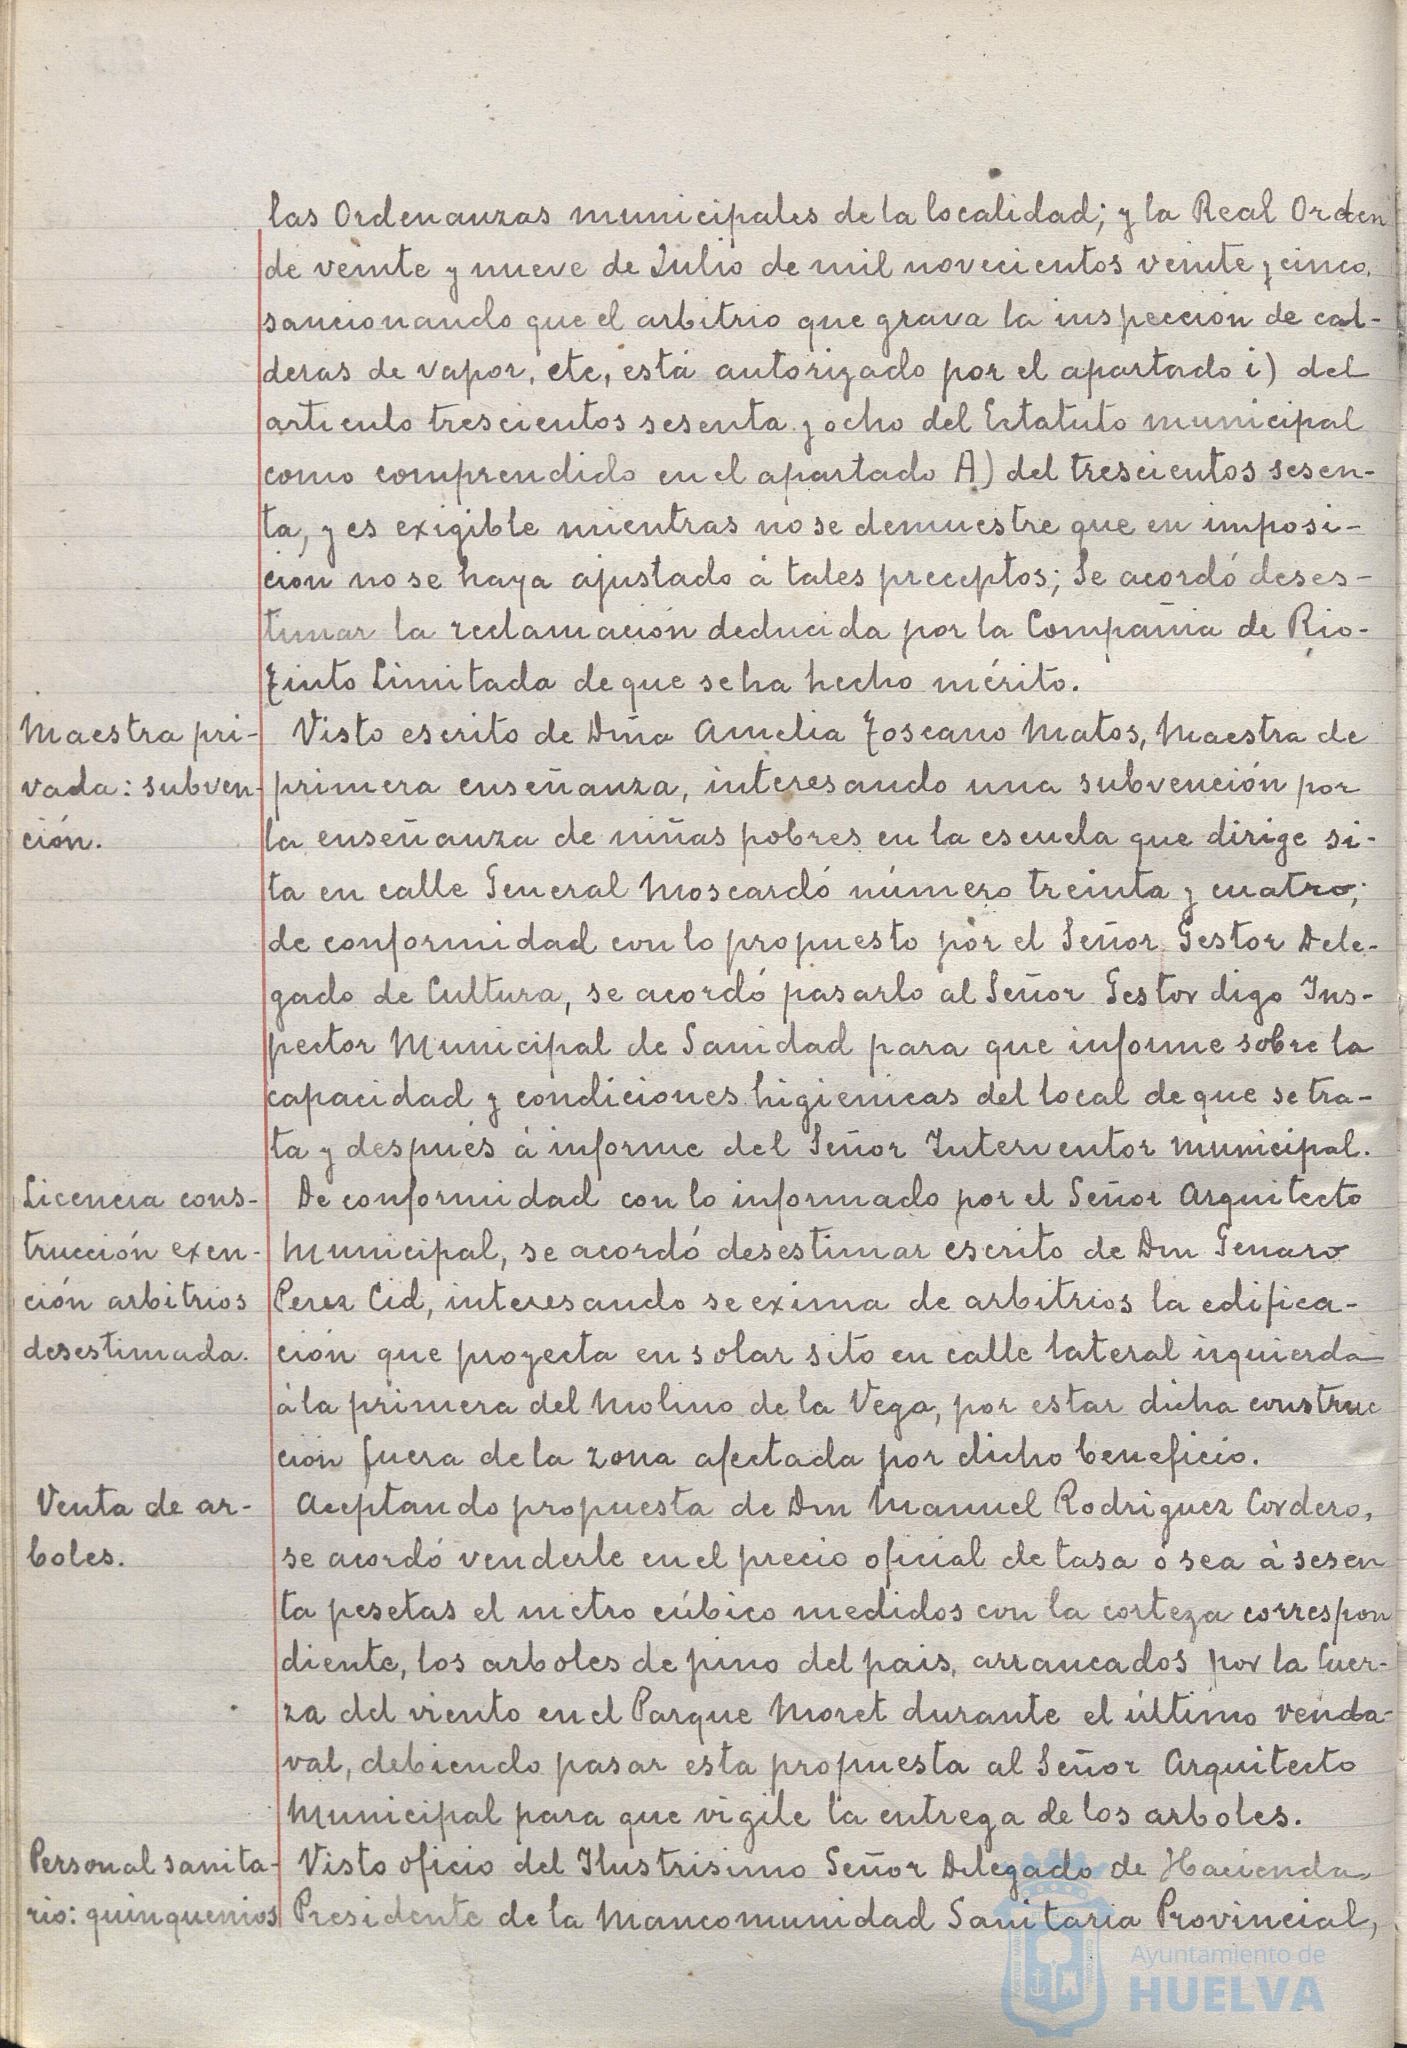 las Ordenanzas municipales de la localidad; y la Real Orden
de veinte y nueve de Julio de mil novecientos veinte y cinco,
sancionando que el arbitrio que grava la inspección de cal-
deras de vapor, etc, está autorizado por el apartado i) del
articulo trescientos sesenta y ocho del Estatuto municipal
como comprendido en el apartado A) del trescientos sesen-
ta, y es exigible mientras no se demuestre que en imposi-
ción no se haya ajustado á tales preceptos; Se acordó deses-
timar la reclamación deducida por la Compañia de Rio-
Tinto Limitada de que se ha hecho mérito.
Maestra pri-
vada: subven-
ción.
Visto escrito de Dña Amelia Toscano Matos, Maestra de
primera enseñanza, interesando una subvención por
la enseñanza de niñas pobres en la escuela que dirige si-
ta en calle General Moscardó número treinta y cuatro;
de conformidad con lo propuesto por el Señor Gestor Dele-
gado de Cultura, se acordó pasarlo al Señor Gestor digo Ins-
pector Municipal de Sanidad para que informe sobre la
capacidad y condiciones higienicas del local de que se tra-
ta y después á informe del Señor Interventor municipal.
Licencia cons-
trucción exen-
ción arbitrios
desestimada.
De conformidad con lo informado por el Señor Arquitecto
Municipal, se acordó desestimar escrito de Don Genaro
Perez Cid, interesando se exima de arbitrios la edifica-
ción que proyecta en solar sito en calle lateral izquierda
á la primera del Molino de la Vega, por estar dicha construc
ción fuera de la zona afectada por dicho beneficio.
Venta de ar-
boles.
Aceptando propuesta de Don Manuel Rodriguez Cordero,
se acordó venderle en el precio oficial de tasa ó sea á sesen
ta pesetas el metro cúbico medidos con la corteza correspon
diente, los arboles de pino del pais, arrancados por la fuer-
za del viento en el Parque Moret durante el último venda-
val, debiendo pasar esta propuesta al Señor Arquitecto
Municipal para que vigile la entrega de los arboles.
Personal sanita-
rio: quinquenios
Visto oficio del Ilustrisimo Señor Delegado de Hacienda,
Presidente de la Mancomunidad Sanitaria Provincial,
Ayuntamiento de
HUELVA